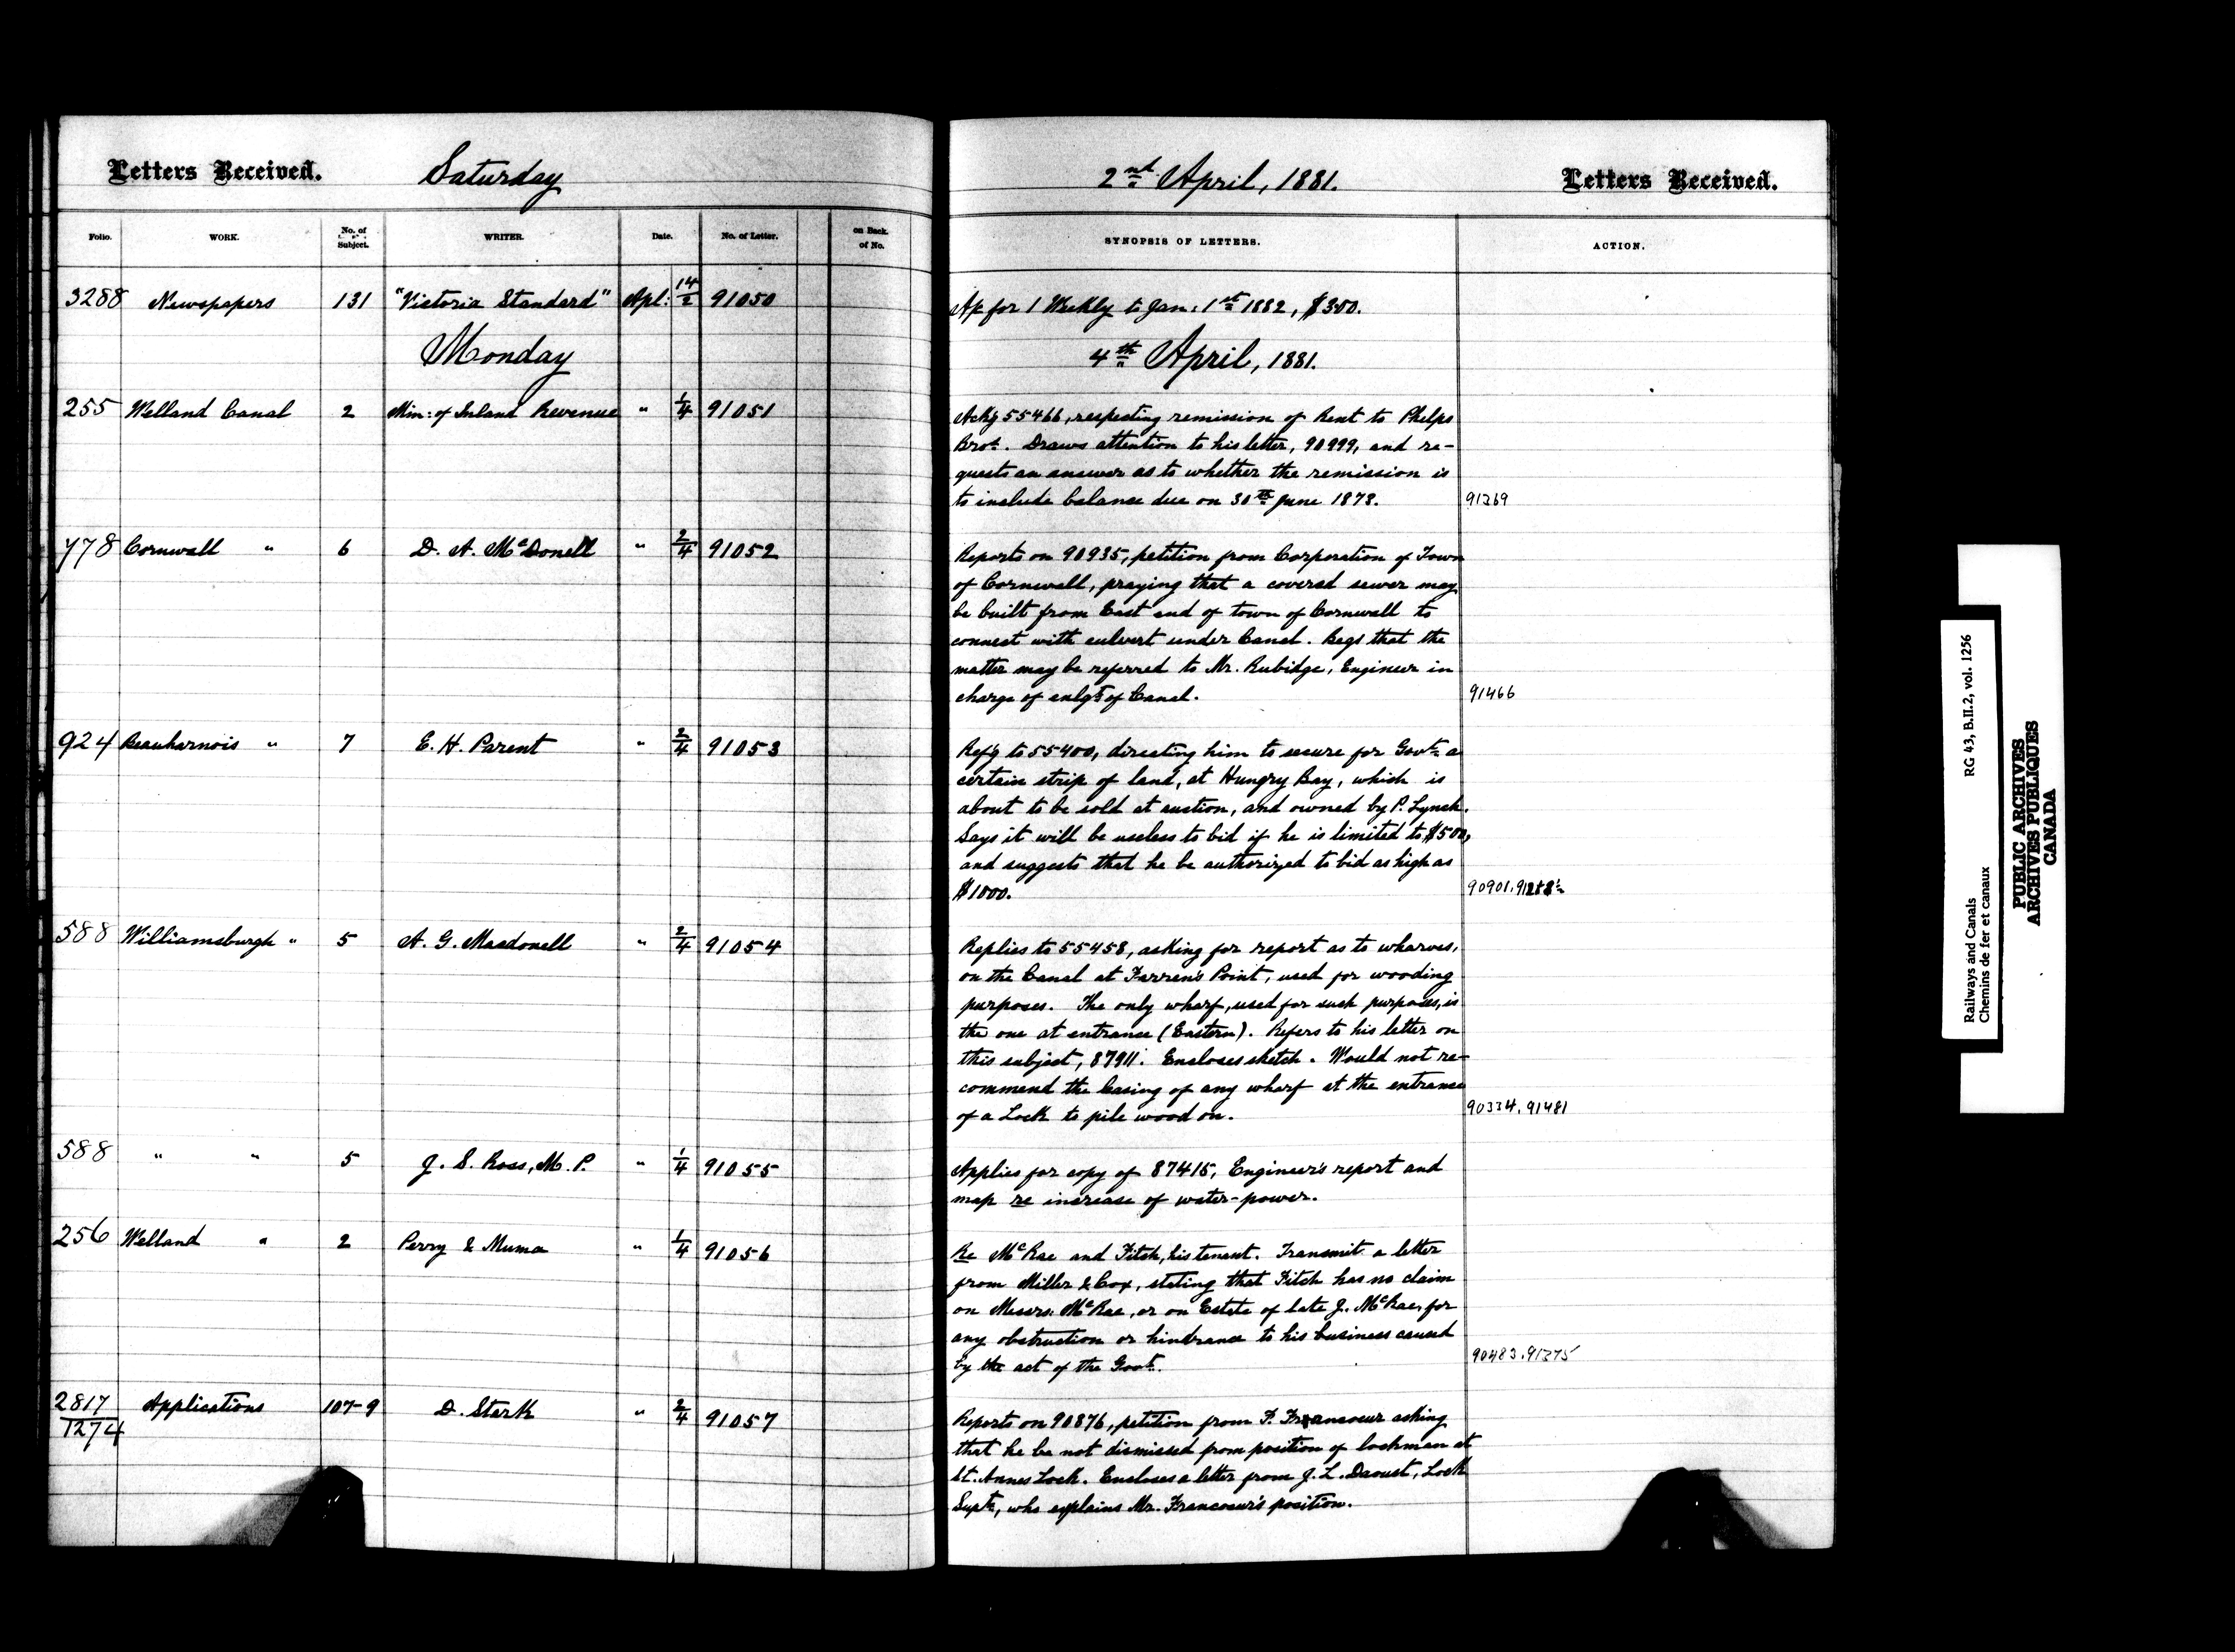 Letters Received. Saturday
2nd April, 1881. Letters Received.
Folio. WORK. No. of Subject. WRITER. Date. No. of Letter. on Back of No.
SYNOPSIS OF LETTERS. ACTION.
3288 Newspapers 131 "Victoria Standard" Apl: 14/2 91050
Ap for 1 Weekly to Jan: 1st 1882, $3.00.
Monday
4th April, 1881.
255 Welland Canal 2 Min: of Inland Revenue " 1/4 91051
Ackg 55466, respecting remission of Rent to Phelps
Bros. Draws attention to his letter, 90999, and re-
quests an answer as to whether the remission is
to include balance due on 30th June 1878.
91269
778 Cornwall " 6 D. A. McDonell " 2/4 91052
Reports on 90935, petition from Corporation of Town
of Cornwall, praying that a covered sewer may
be built from East end of town of Cornwall to
connect with culvert under Canal. Begs that the
matter may be referred to Mr. Rubidge, Engineer in
charge of enlgt of Canal.
91466
924 Beauharnois " 7 E. H. Parent " 2/4 91053
Refg to 55400, directing him to secure for Govt a
certain strip of land, at Hungry Bay, which is
about to be sold at auction, and owned by P. Lynch.
Says it will be useless to bid if he is limited to $500,
and suggests that he be authorized to bid as high as
$1000.
90901.
588 Williamsburgh " 5 A. G. Macdonell " 2/4 91054
Replies to 55458, asking for report as to wharves,
on the Canal at Farren's Point, used for wooding
purposes. The only wharf, used for such purposes, is
the one at entrance (Eastern). Refers to his letter on
this subject, 87911. Encloses sketch. Would not re-
commend the leasing of any wharf at the entrance
of a Lock to pile wood on.
90334. 91481
588 " " 5 J. S. Ross, M.P. " 1/4 91055
Applies for copy of 87415, Engineer's report and
map re increase of water-power.
256 Welland " 2 Perry & Muma " 1/4 91056
Re McRae and Fitch, his tenant. Transmit a letter
from Miller & Cox, stating that Fitch has no claim
on Messrs: McRae, or on Estate of late J. McRae, for
any obstruction or hindrance to his business caused
by the act of the Govt.
90483. 91375
2817/1274 Applications 107-9 D. Stark " 2/4 91057
Reports on 90876, petition from F. Francoeur asking
that he be not dismissed from position of lockman at
St. Annes Lock. Encloses a letter from J. L. Daoust, Lock
Supt, who explains Mr. Francoeur's position.
Railways and Canals RG 43, B.II.2, vol. 1256
Chemins de fer et canaux
PUBLIC ARCHIVES
ARCHIVES PUBLIQUES
CANADA